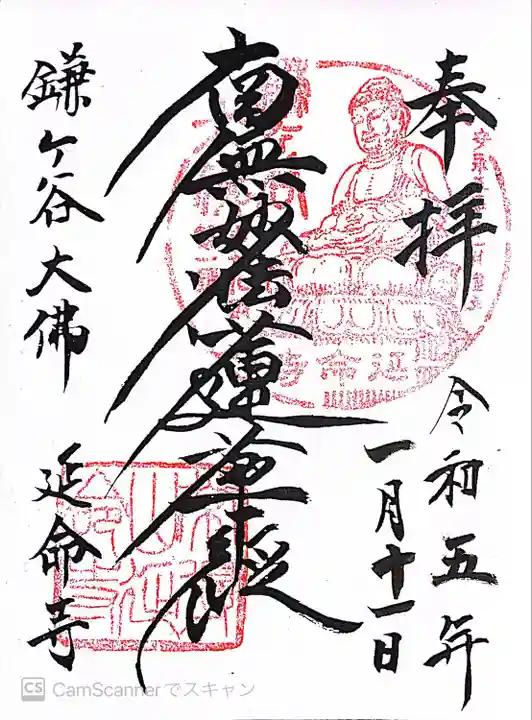 奉拝
令和五年
一月十一日
南無妙法蓮華経
鎌ケ谷大佛
延命寺
CS CamScannerでスキャン